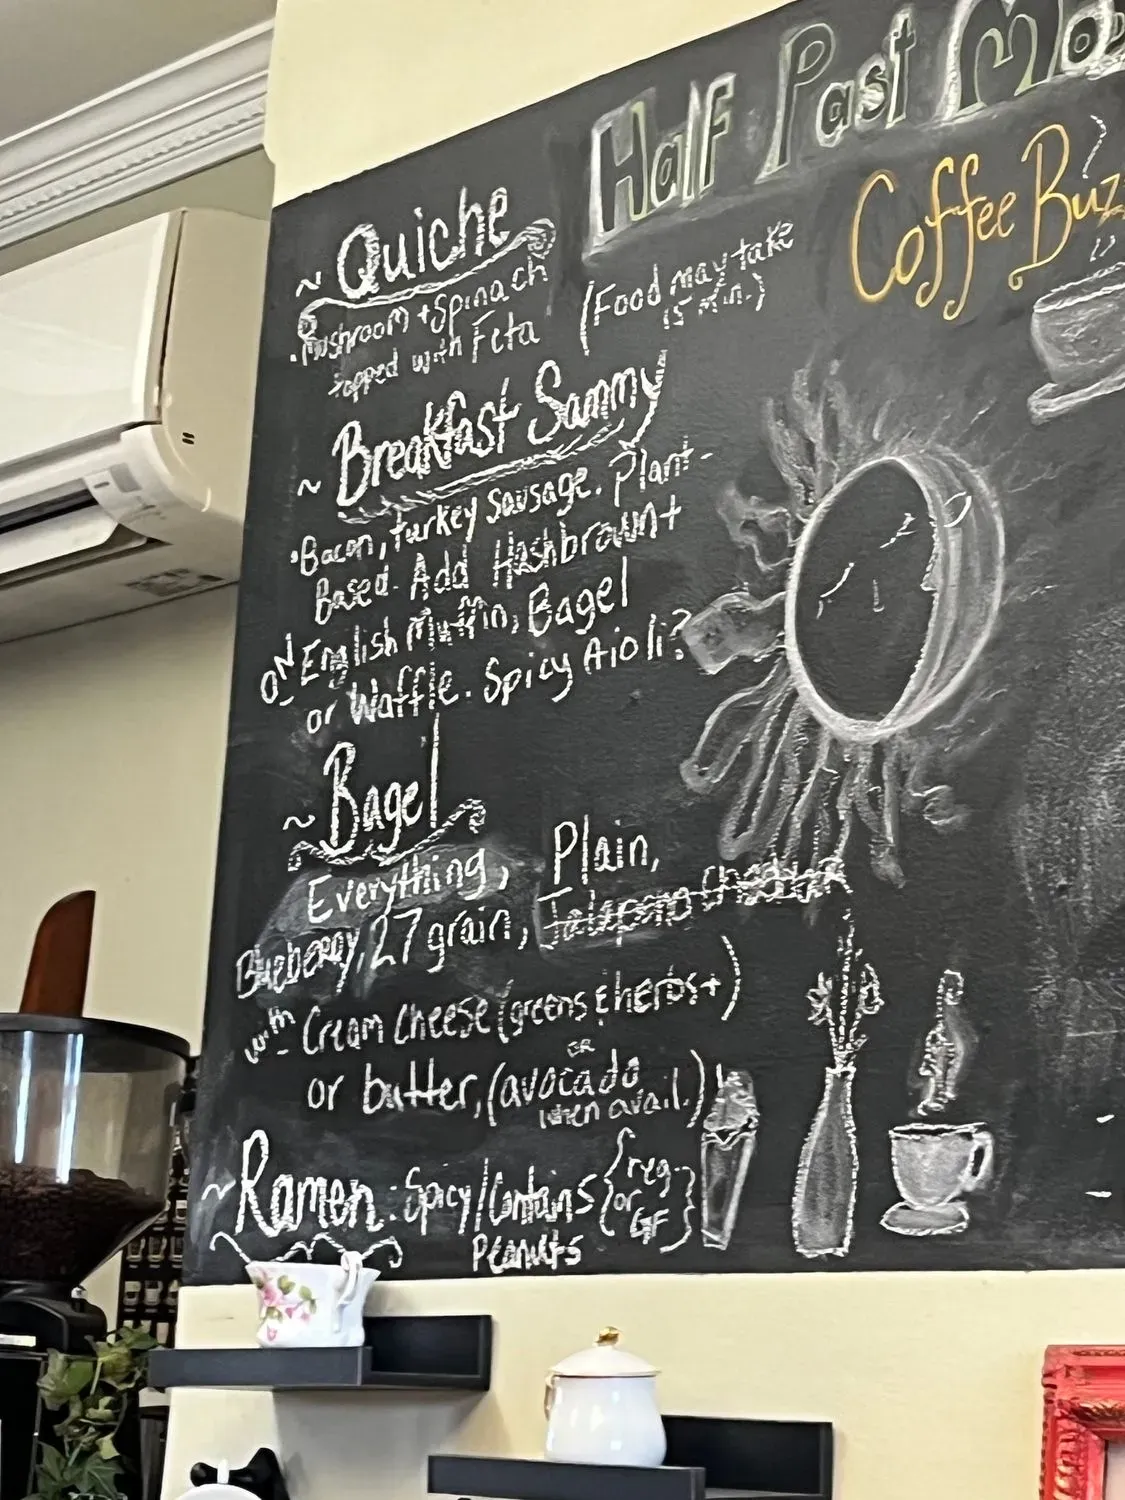 Half Past
Coffee Buz
~ Quiche
Mushroom + Spinach
topped with Feta
(Food may take
15 min.)
~ Breakfast Sammy
Bacon, turkey sausage. Plant-
Based. Add Hashbrown+
ON English Muffin, Bagel
or Waffle. Spicy Aioli?
~ Bagel
Everything, Plain,
Blueberry, 27 grain, Jalapeno Cheddar
with Cream cheese (greens & herbs+)
or butter, (avocado
OR
when avail.)
~Ramen: Spicy/Contains {reg.
or
GF}
Peanuts